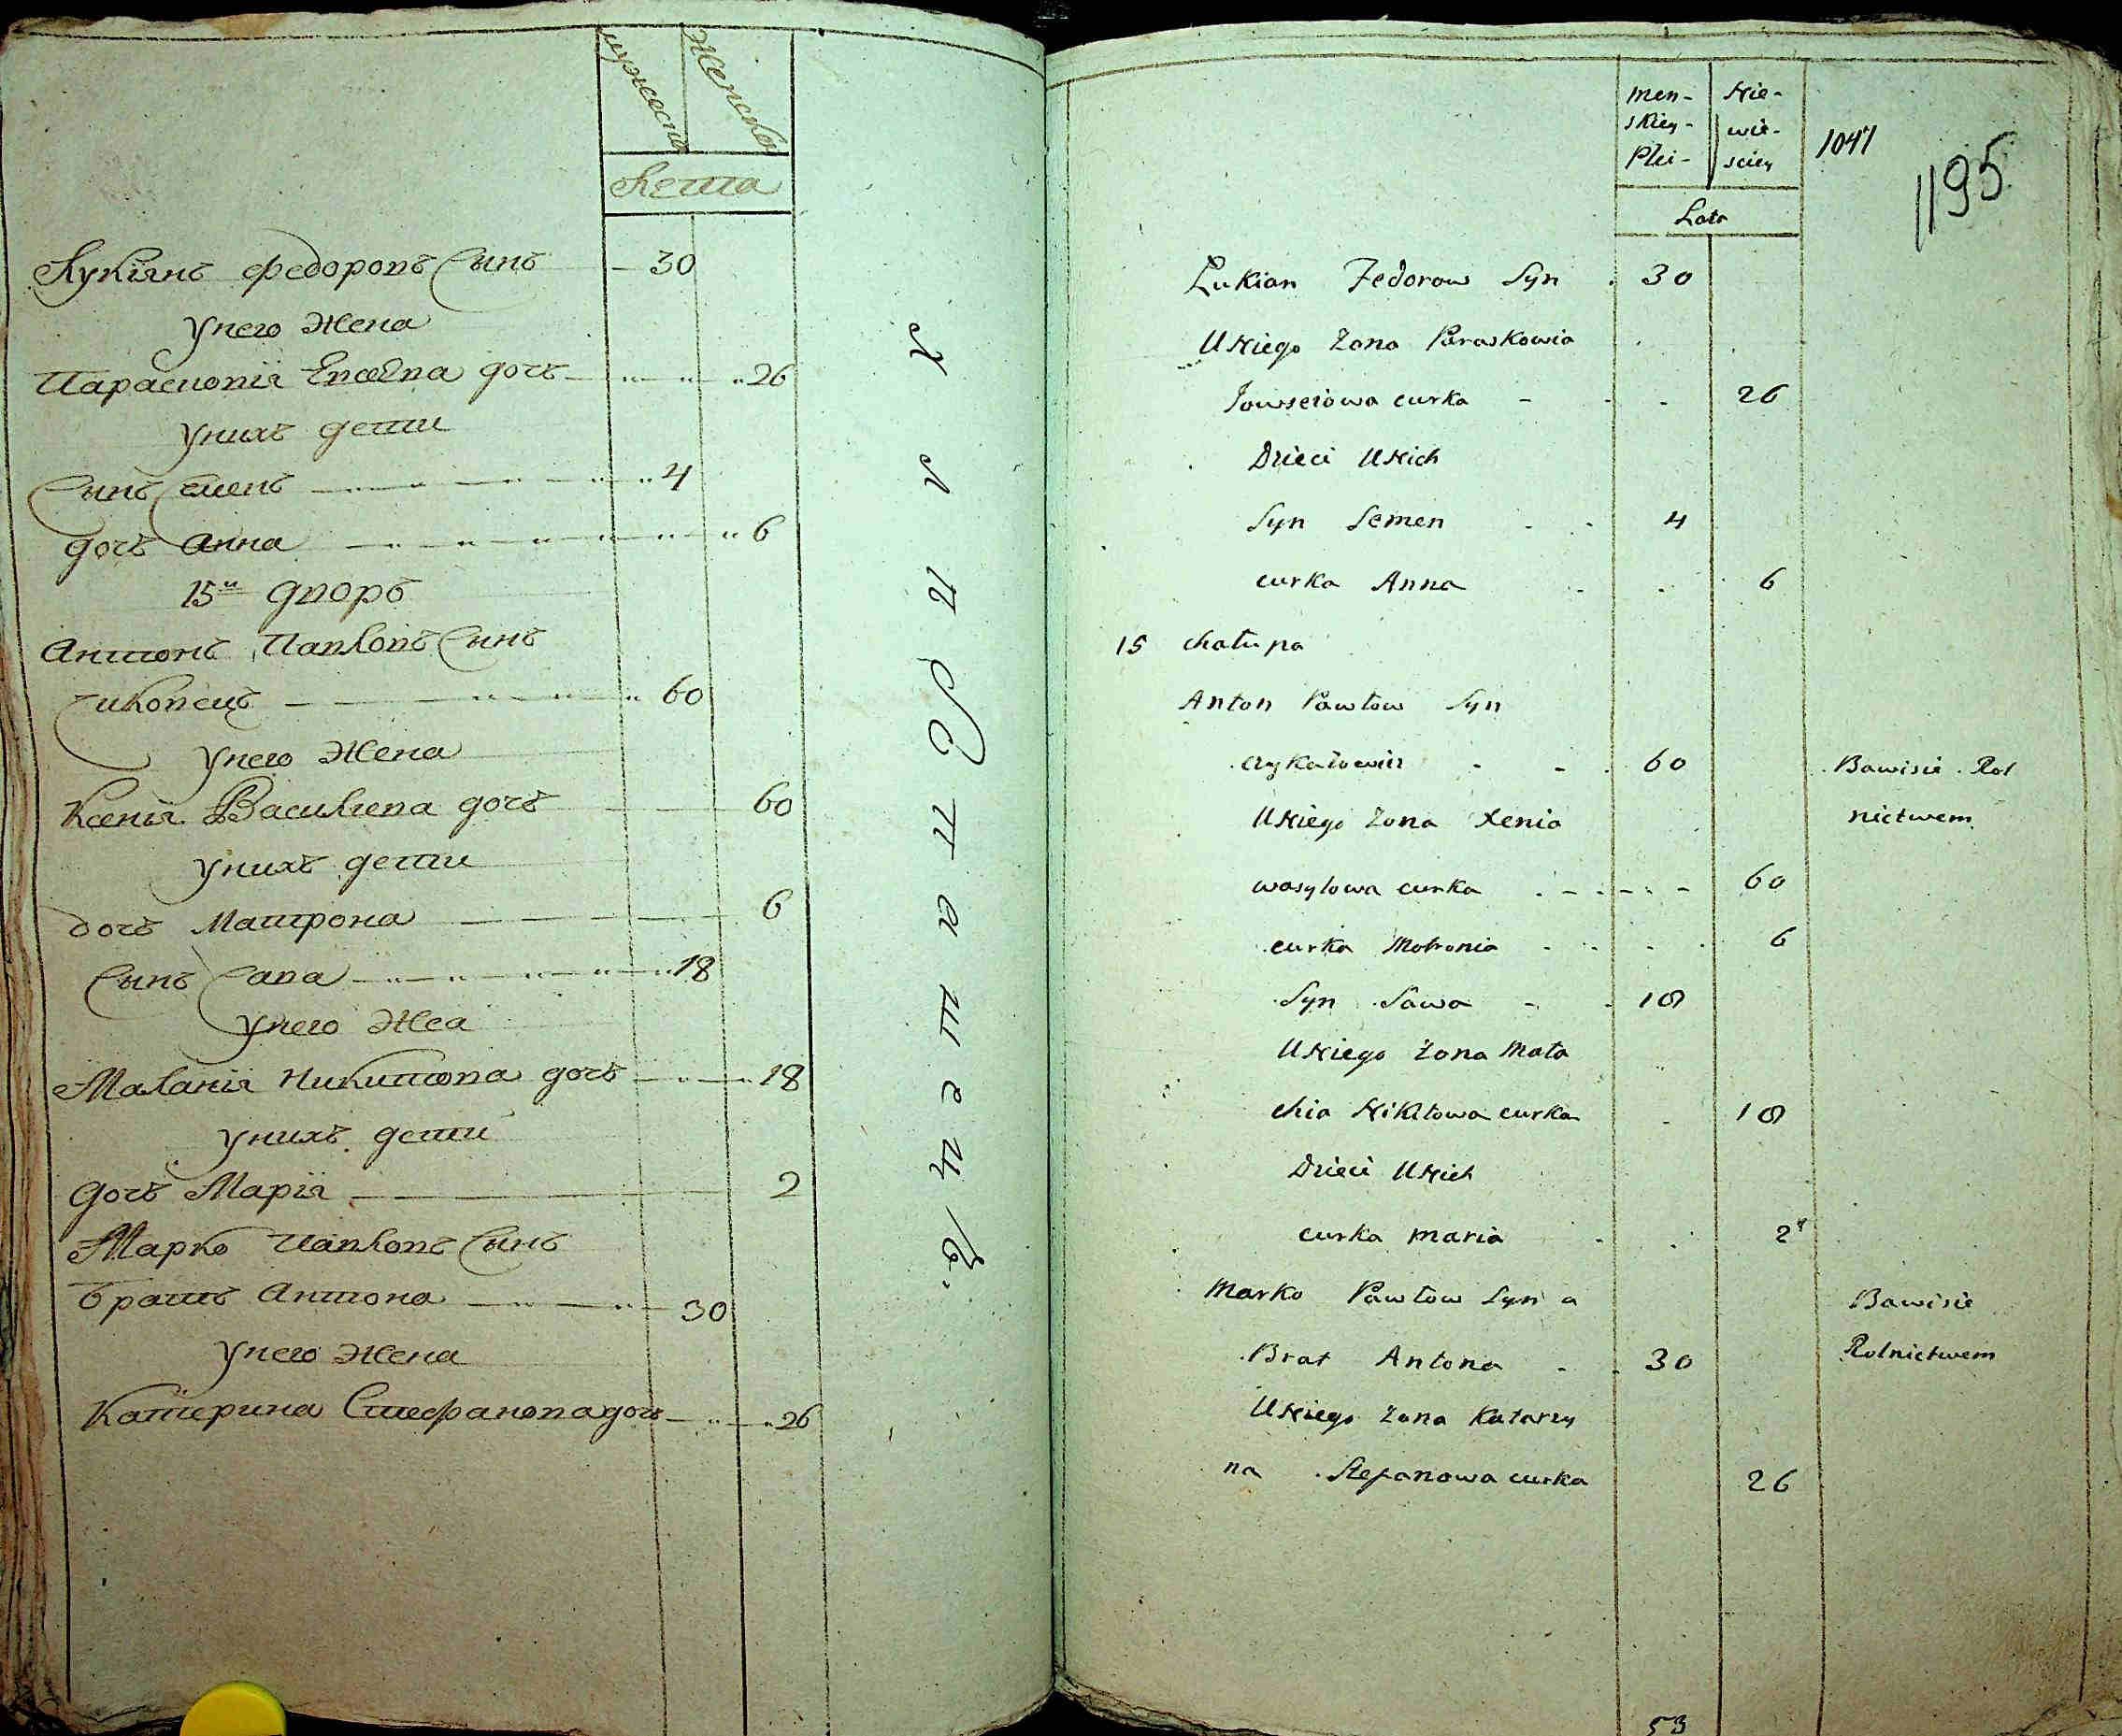 мужеска
женска
Лета
Лукіянъ Федоровъ Сынъ 30
Унего жена
Парасковія Евсѣева дочъ 26
Унихъ дети
Сынъ Семенъ 4
дочъ Анна 6
15й дворъ
Антонъ Павловъ Сынъ
60
Унего жена
Ксенія Василиева дочъ 60
Унихъ дети
дочъ Матрона 6
Сынъ Сава 18
Унего жеа
Маланія Никитова дочъ 18
Унихъ дети
дочъ Марія 2
Марко Павловъ Сынъ
братъ Антона 30
Унего жена
Катерина Стефанова доч 26
men- Nie-
skiey- wie-
Plci- sciey
1047
1195
Lata
Lukian Fedorow Syn 30
UNiego Zona Paraskowia
Jowseiowa curka 26
Dzieci UNich
Syn Semen 4
curka Anna 6
15 chałupa
Anton Pawłow Syn
czykałowicz 60 Bawisie Rol
UNiego Zona Xenia nictwem
wasylowa curka 60
curka Motronia 6
Syn Sawa 18
UNiego Zona Mała
chia Nikitowa curka 18
Dzieci UNich
curka maria 2
Marko Pawłow Syn a Bawisie
Brat Antona 30 Rolnictwem
UNiego Zona Katarzy
na Stefanowa curka 26
53